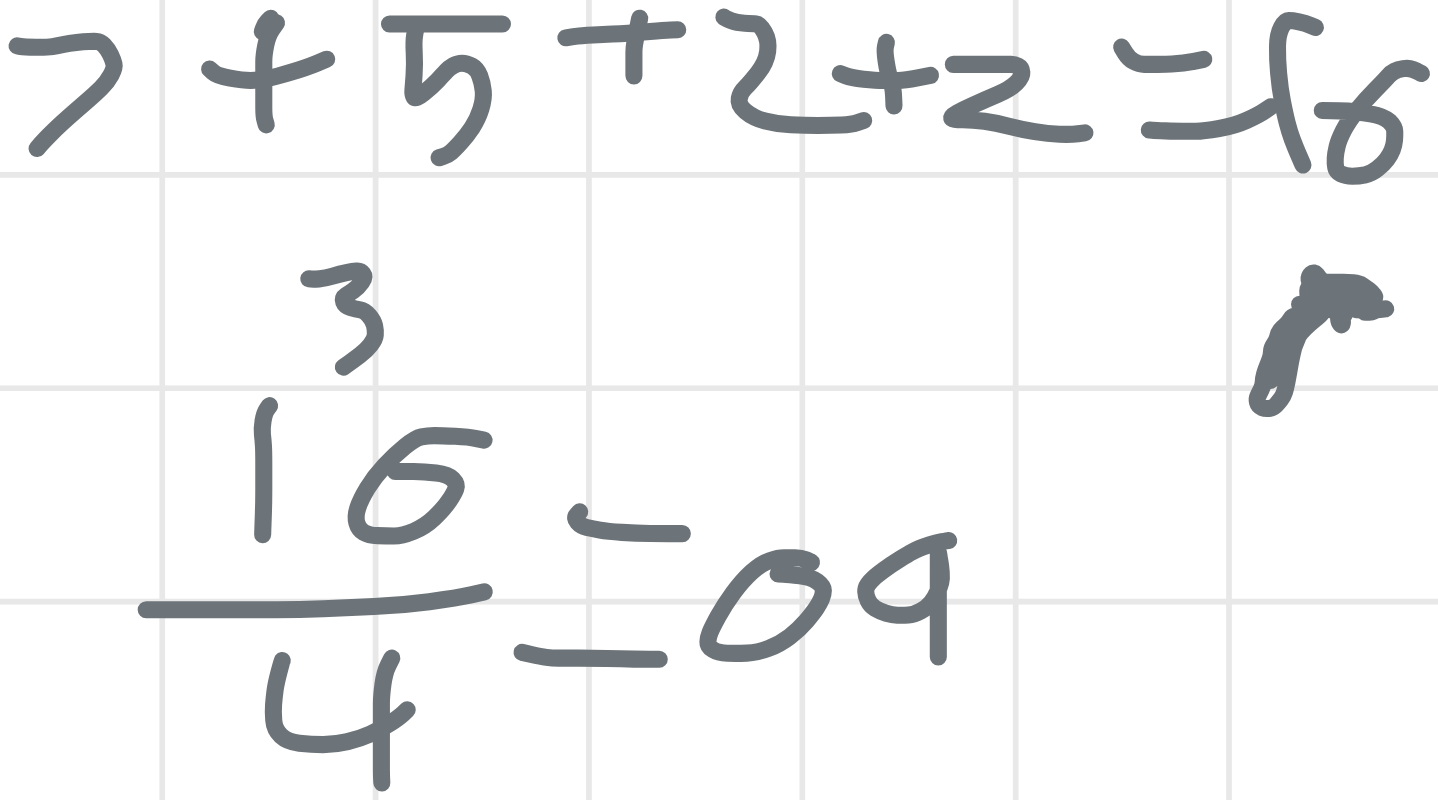 7 + 5 + 2 + 2 = 16
3
16
4
= 09